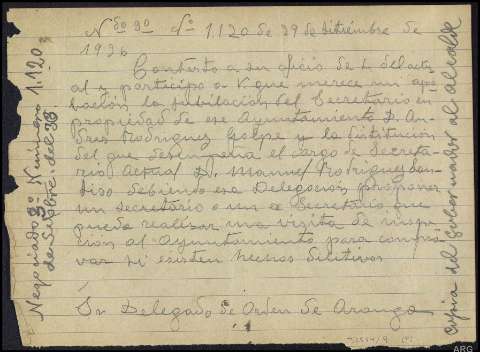 Ndo 3º Nº 1.120 de 29 de Setiembre de
1936
Contesto a su oficio de 1 del actu
al y participo a V. que merece mi apro
bación la jubilación del Secretario en
propiedad de ese Ayuntamiento D. An
drés Rodriguez Golpe y la Sustitución
del que desempeña el cargo de Secreta
rio Actual D. Manuel Rodriguez San
tiso debiendo esa Delegación proponer
un secretario o un ex Secretario que
pueda realizar una visita de inspe
cion al Ayuntamiento para compro
var si existen hechos delitivos
Sr Delegado de Orden de Aranga
Negociado 3º Numero 1.120=
de Setbre. del 36
Copia del Gobernador al alcalde
ARG